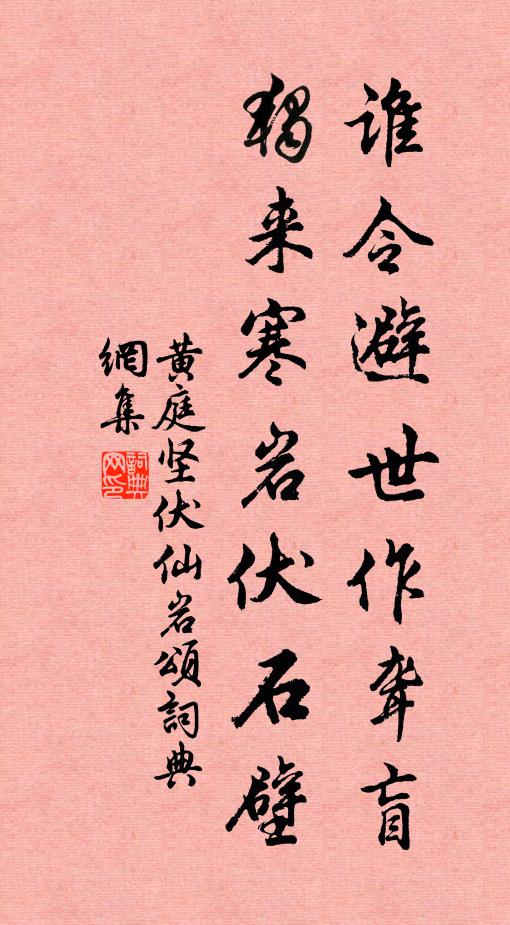 谁令避世作聋盲
独来寒岩伏石壁
黄庭坚伏仙岩颂詞典
網集
詞典网印